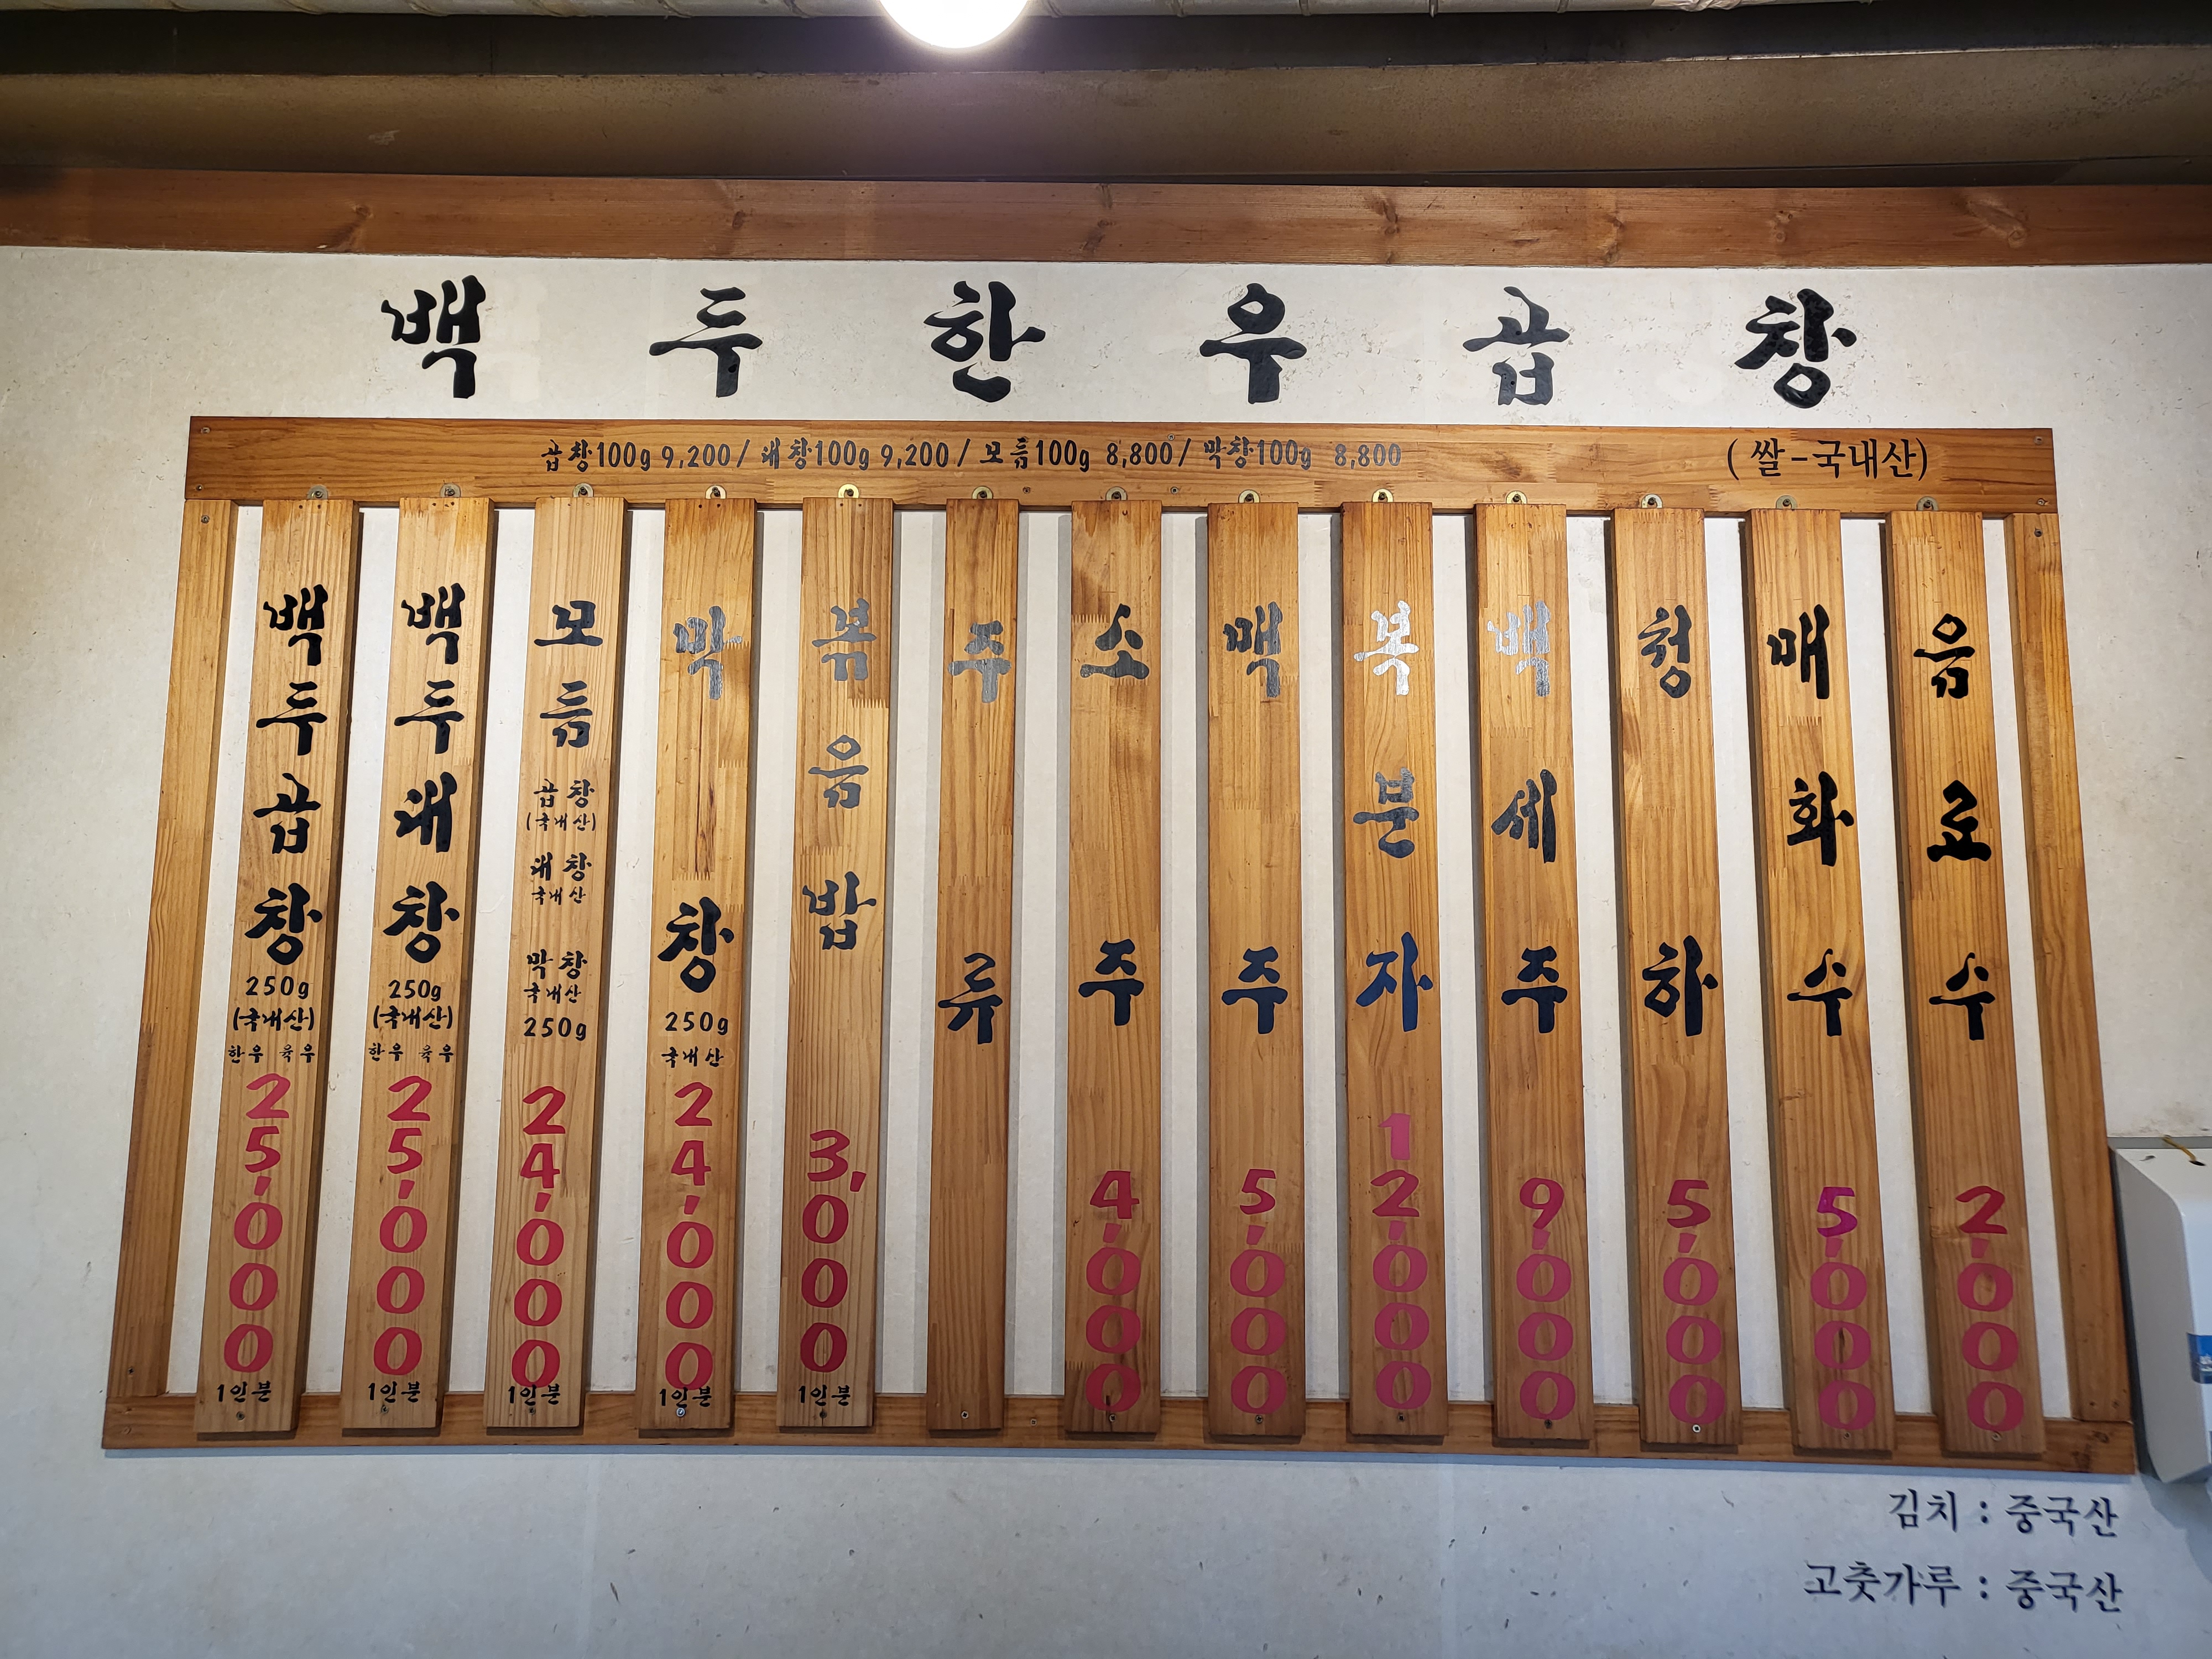 백두한우곱창
곱창100g 9,200 / 대창100g 9,200 / 모듬100g 8,800 / 막창100g 8,800
(쌀-국내산)
백두곱창
250g
(국내산)
한우 육우
25,000
1인분
백두대창
250g
(국내산)
한우 육우
25,000
1인분
모듬
곱창
(국내산)
대창
국내산
막창
국내산
250g
24,000
1인분
막창
250g
국내산
24,000
1인분
볶음밥
3,000
1인분
주류
소주
4,000
맥주
5,000
복분자
12,000
백세주
9,000
청하
5,000
매화수
5,000
음료수
2,000
김치 : 중국산
고춧가루 : 중국산